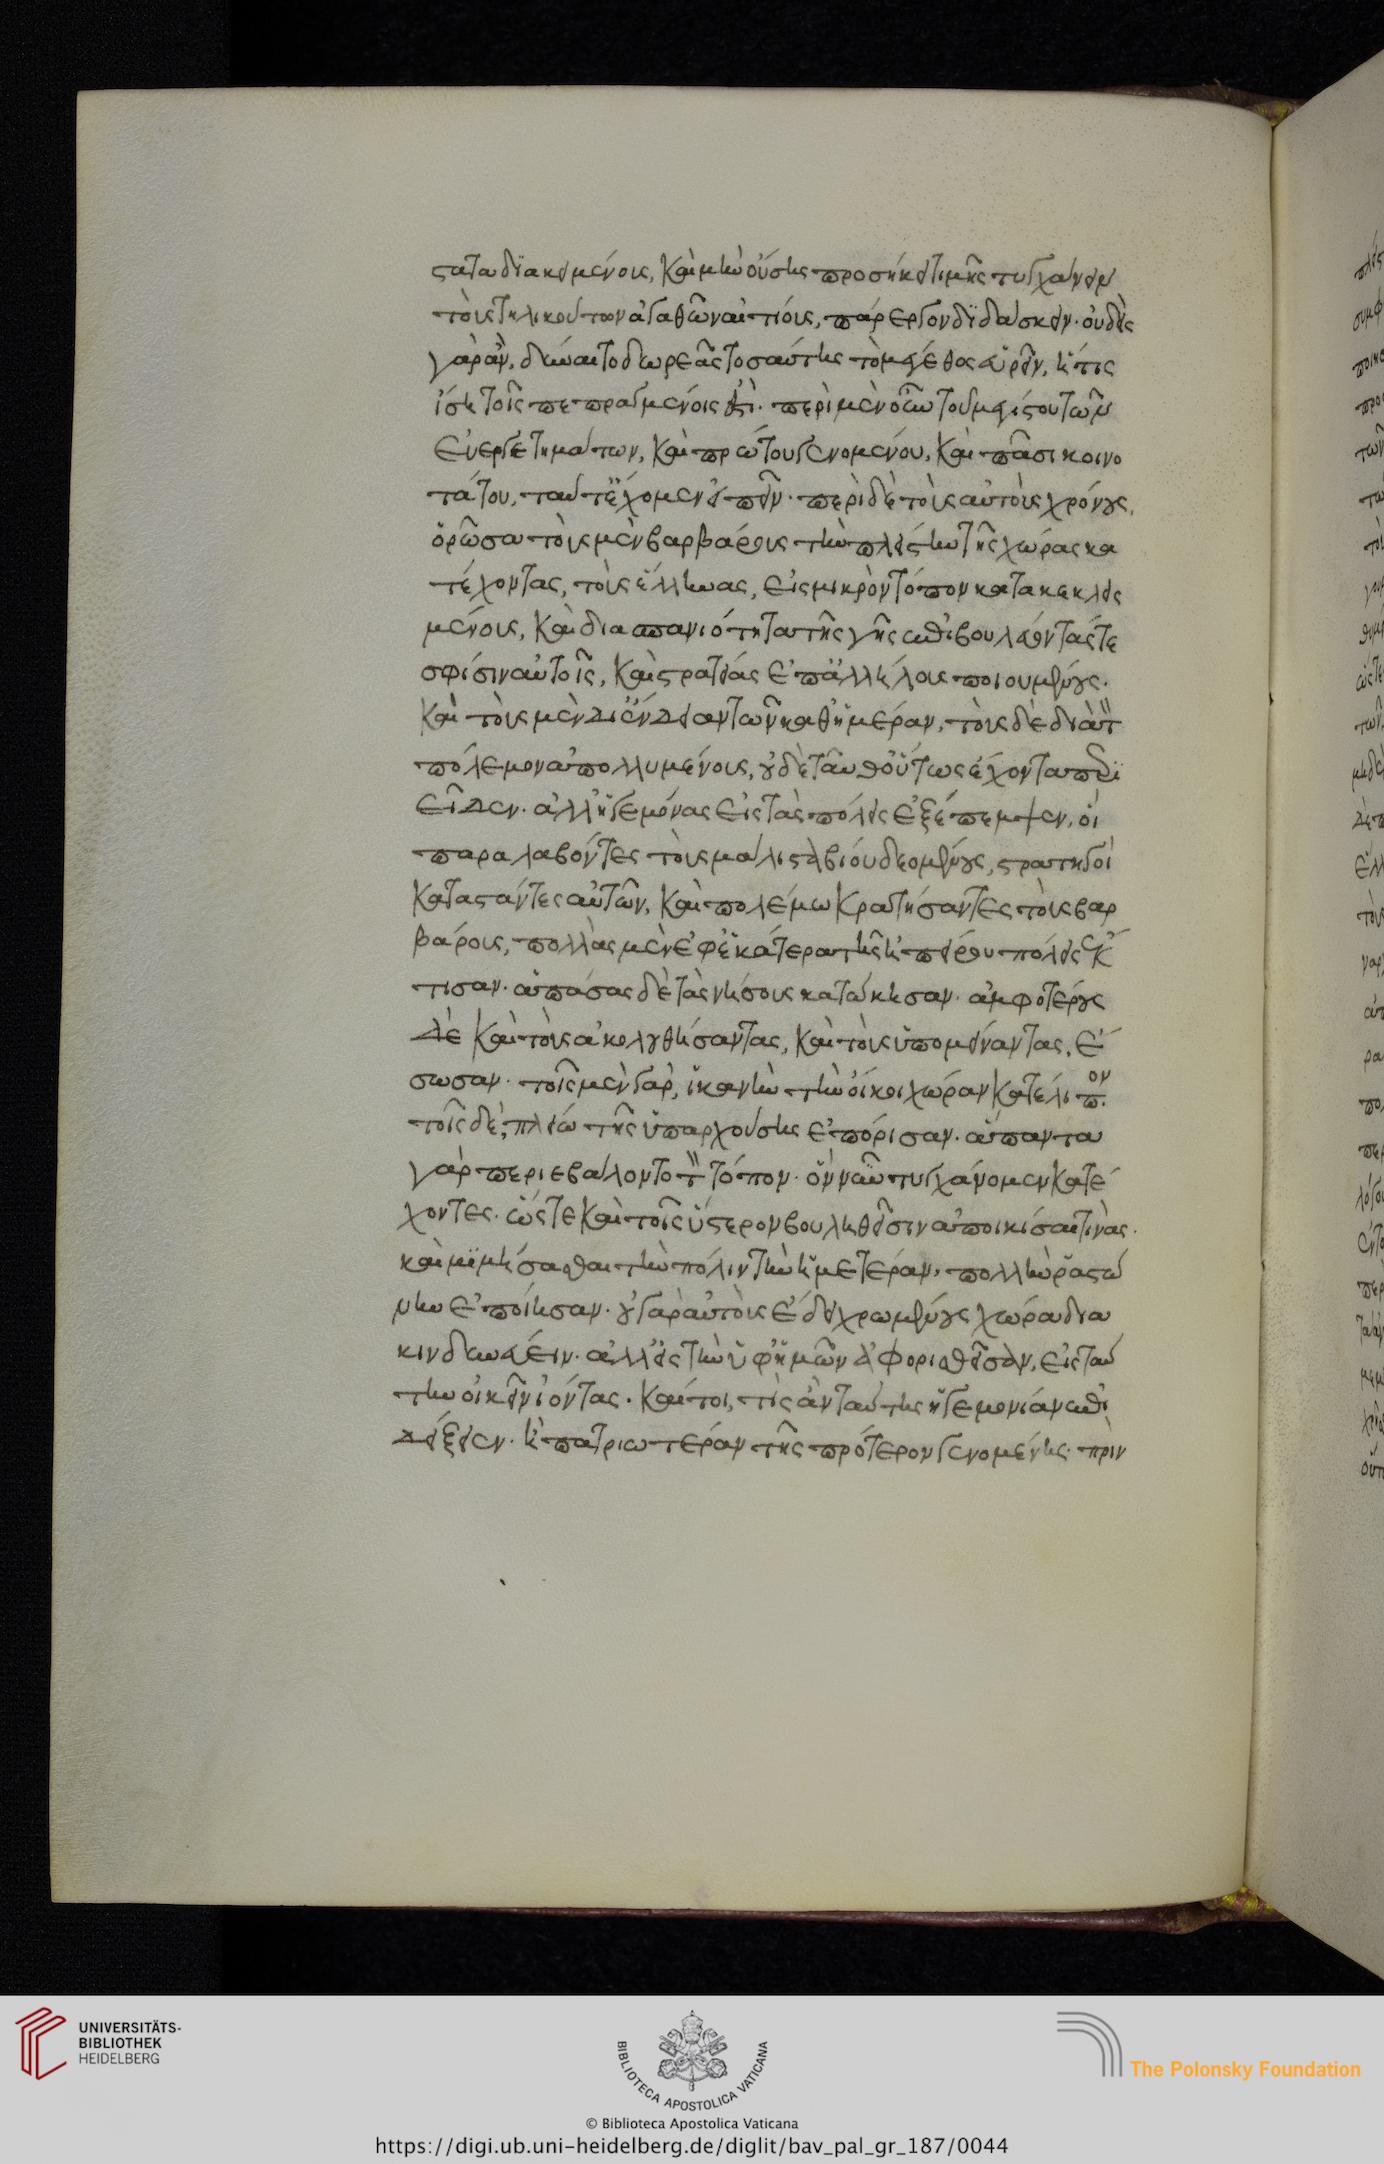 στατα διακειμένοις, καὶ μὴν οὔσης προσήκει τιμῆς τυγχάνειν
τοὺς τηλικούτων ἀγαθῶν αἰτίους, πάρεργον διδάσκειν. οὐδεὶς
γὰρ ἂν, δύναιτο δωρεὰς τοσαύτης τὸ μέγεθος εὑρεῖν, ἥτις
ἴση τοῖς πεπραγμένοις ἐστί. περὶ μὲν οὖν τοῦ μεγίστου τῶν
εὐεργετημάτων, καὶ πρώτου γενομένου, καὶ πᾶσι κοινο
τάτου, ταῦτ' ἔχομεν εἰπεῖν. περὶ δὲ τοὺς αὐτοὺς χρόνους,
ὁρῶσα τοὺς μὲν βαρβάρους τὴν πλείστην τῆς χώρας κα
τέχοντας, τοὺς ἕλληνας, εἰς μικρὸν τόπον κατακεκλει
μένους, καὶ διὰ σπανιότητα τῆς γῆς ἐπιβουλεύοντάς τε
σφίσιν αὐτοῖς, καὶ στρατείας ἐπ' ἀλλήλους ποιουμένους.
καὶ τοὺς μὲν δι' ἔνδειαν τῶν καθ' ἡμέραν, τοὺς δὲ διὰ τὸν
πόλεμον ἀπολλυμένους, οὐδὲ ταῦθ' οὕτως ἔχοντα περι
εῖδεν. ἀλλ' ἡγεμόνας εἰς τὰς πόλεις ἐξέπεμψεν, οἳ
παραλαβόντες τοὺς μάλιστα βίου δεομένους, στρατηγοὶ
καταστάντες αὐτῶν, καὶ πολέμω κρατήσαντες τοὺς βαρ
βάρους, πολλὰς μὲν ἐφ' ἑκάτερα τῆς ἠπείρου πόλεις ἔκ
τισαν. ἁπάσας δὲ τὰς νήσους κατώκησαν. ἀμφοτέρους
δὲ καὶ τοὺς ἀκολουθήσαντας, καὶ τοὺς ὑπομείναντας, ἔ
σωσαν. τοῖς μὲν γὰρ, ἱκανὴν τὴν οἴκοι χώραν κατέλιπον.
τοῖς δὲ, πλείω τῆς ὑπαρχούσης ἐπόρισαν. ἅπαντα
γὰρ περιεβάλοντο τὸν τόπον. ὃν νῦν τυγχάνομεν κατέ
χοντες. ὥστε καὶ τοῖς ὕστερον βουληθεῖσιν ἀποικίσαι τινὰς.
καὶ μιμήσασθαι τὴν πόλιν τὴν ἡμετέραν, πολλὴν ῥαστώ
νην ἐποίησαν. οὐ γὰρ αὐτοὺς ἔδει χρωμένους χώρα δια
κινδυνεύειν. ἀλλ' εἰς τὴν ὑφ' ἡμῶν ἀφορισθεῖσαν, εἰς ταύ
την οἰκεῖν ἰόντας. καίτοι, τίς ἂν ταύτης ἡγεμονίαν ἐπι
δείξειεν. ἢ πατριωτέραν τῆς πρότερον γενομένης. πρὶν
UNIVERSITÄTS-
BIBLIOTHEK
HEIDELBERG
BIBLIOTECA APOSTOLICA VATICANA
© Biblioteca Apostolica Vaticana
The Polonsky Foundation
https://digi.ub.uni-heidelberg.de/diglit/bav_pal_gr_187/0044